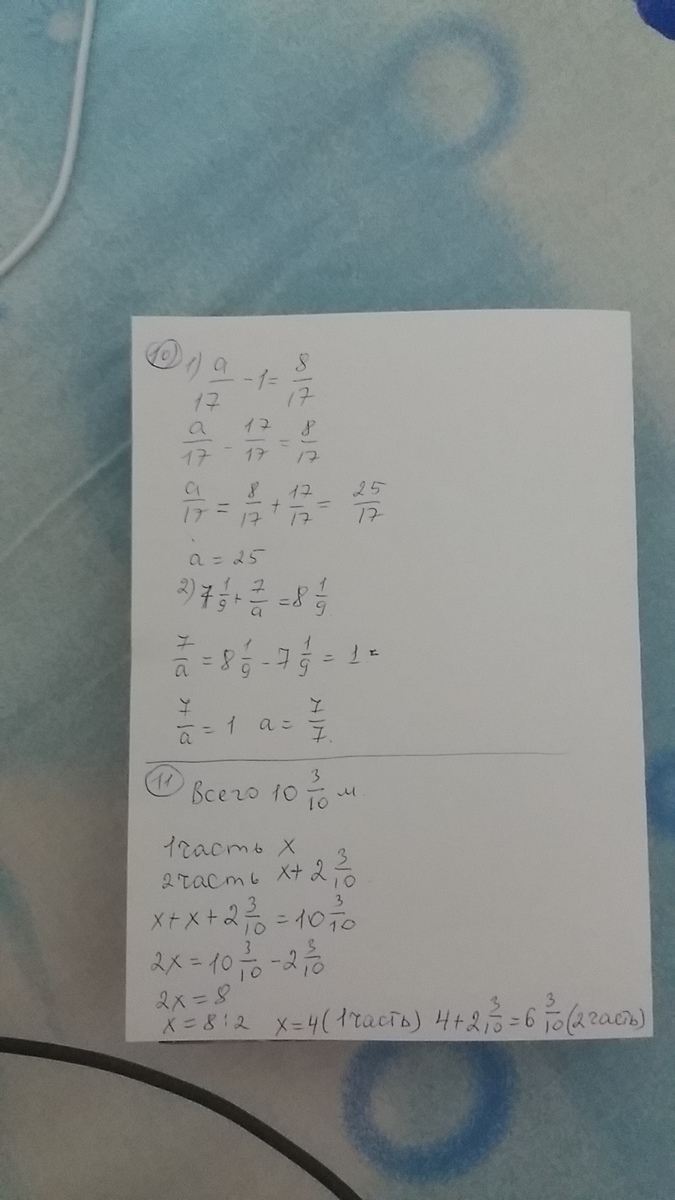 10) 1) a/17 - 1 = 8/17
a/17 - 17/17 = 8/17
a/17 = 8/17 + 17/17 = 25/17
a = 25
2) 7 1/9 + 7/a = 8 1/9
7/a = 8 1/9 - 7 1/9 = 1 =
7/a = 1 a = 7/7.
11 Всего 10 3/10 м.
1 часть x
2 часть x + 2 3/10
x + x + 2 3/10 = 10 3/10
2x = 10 3/10 - 2 3/10
2x = 8
x = 8 : 2 x = 4 (1 часть) 4 + 2 3/10 = 6 3/10 (2 часть)